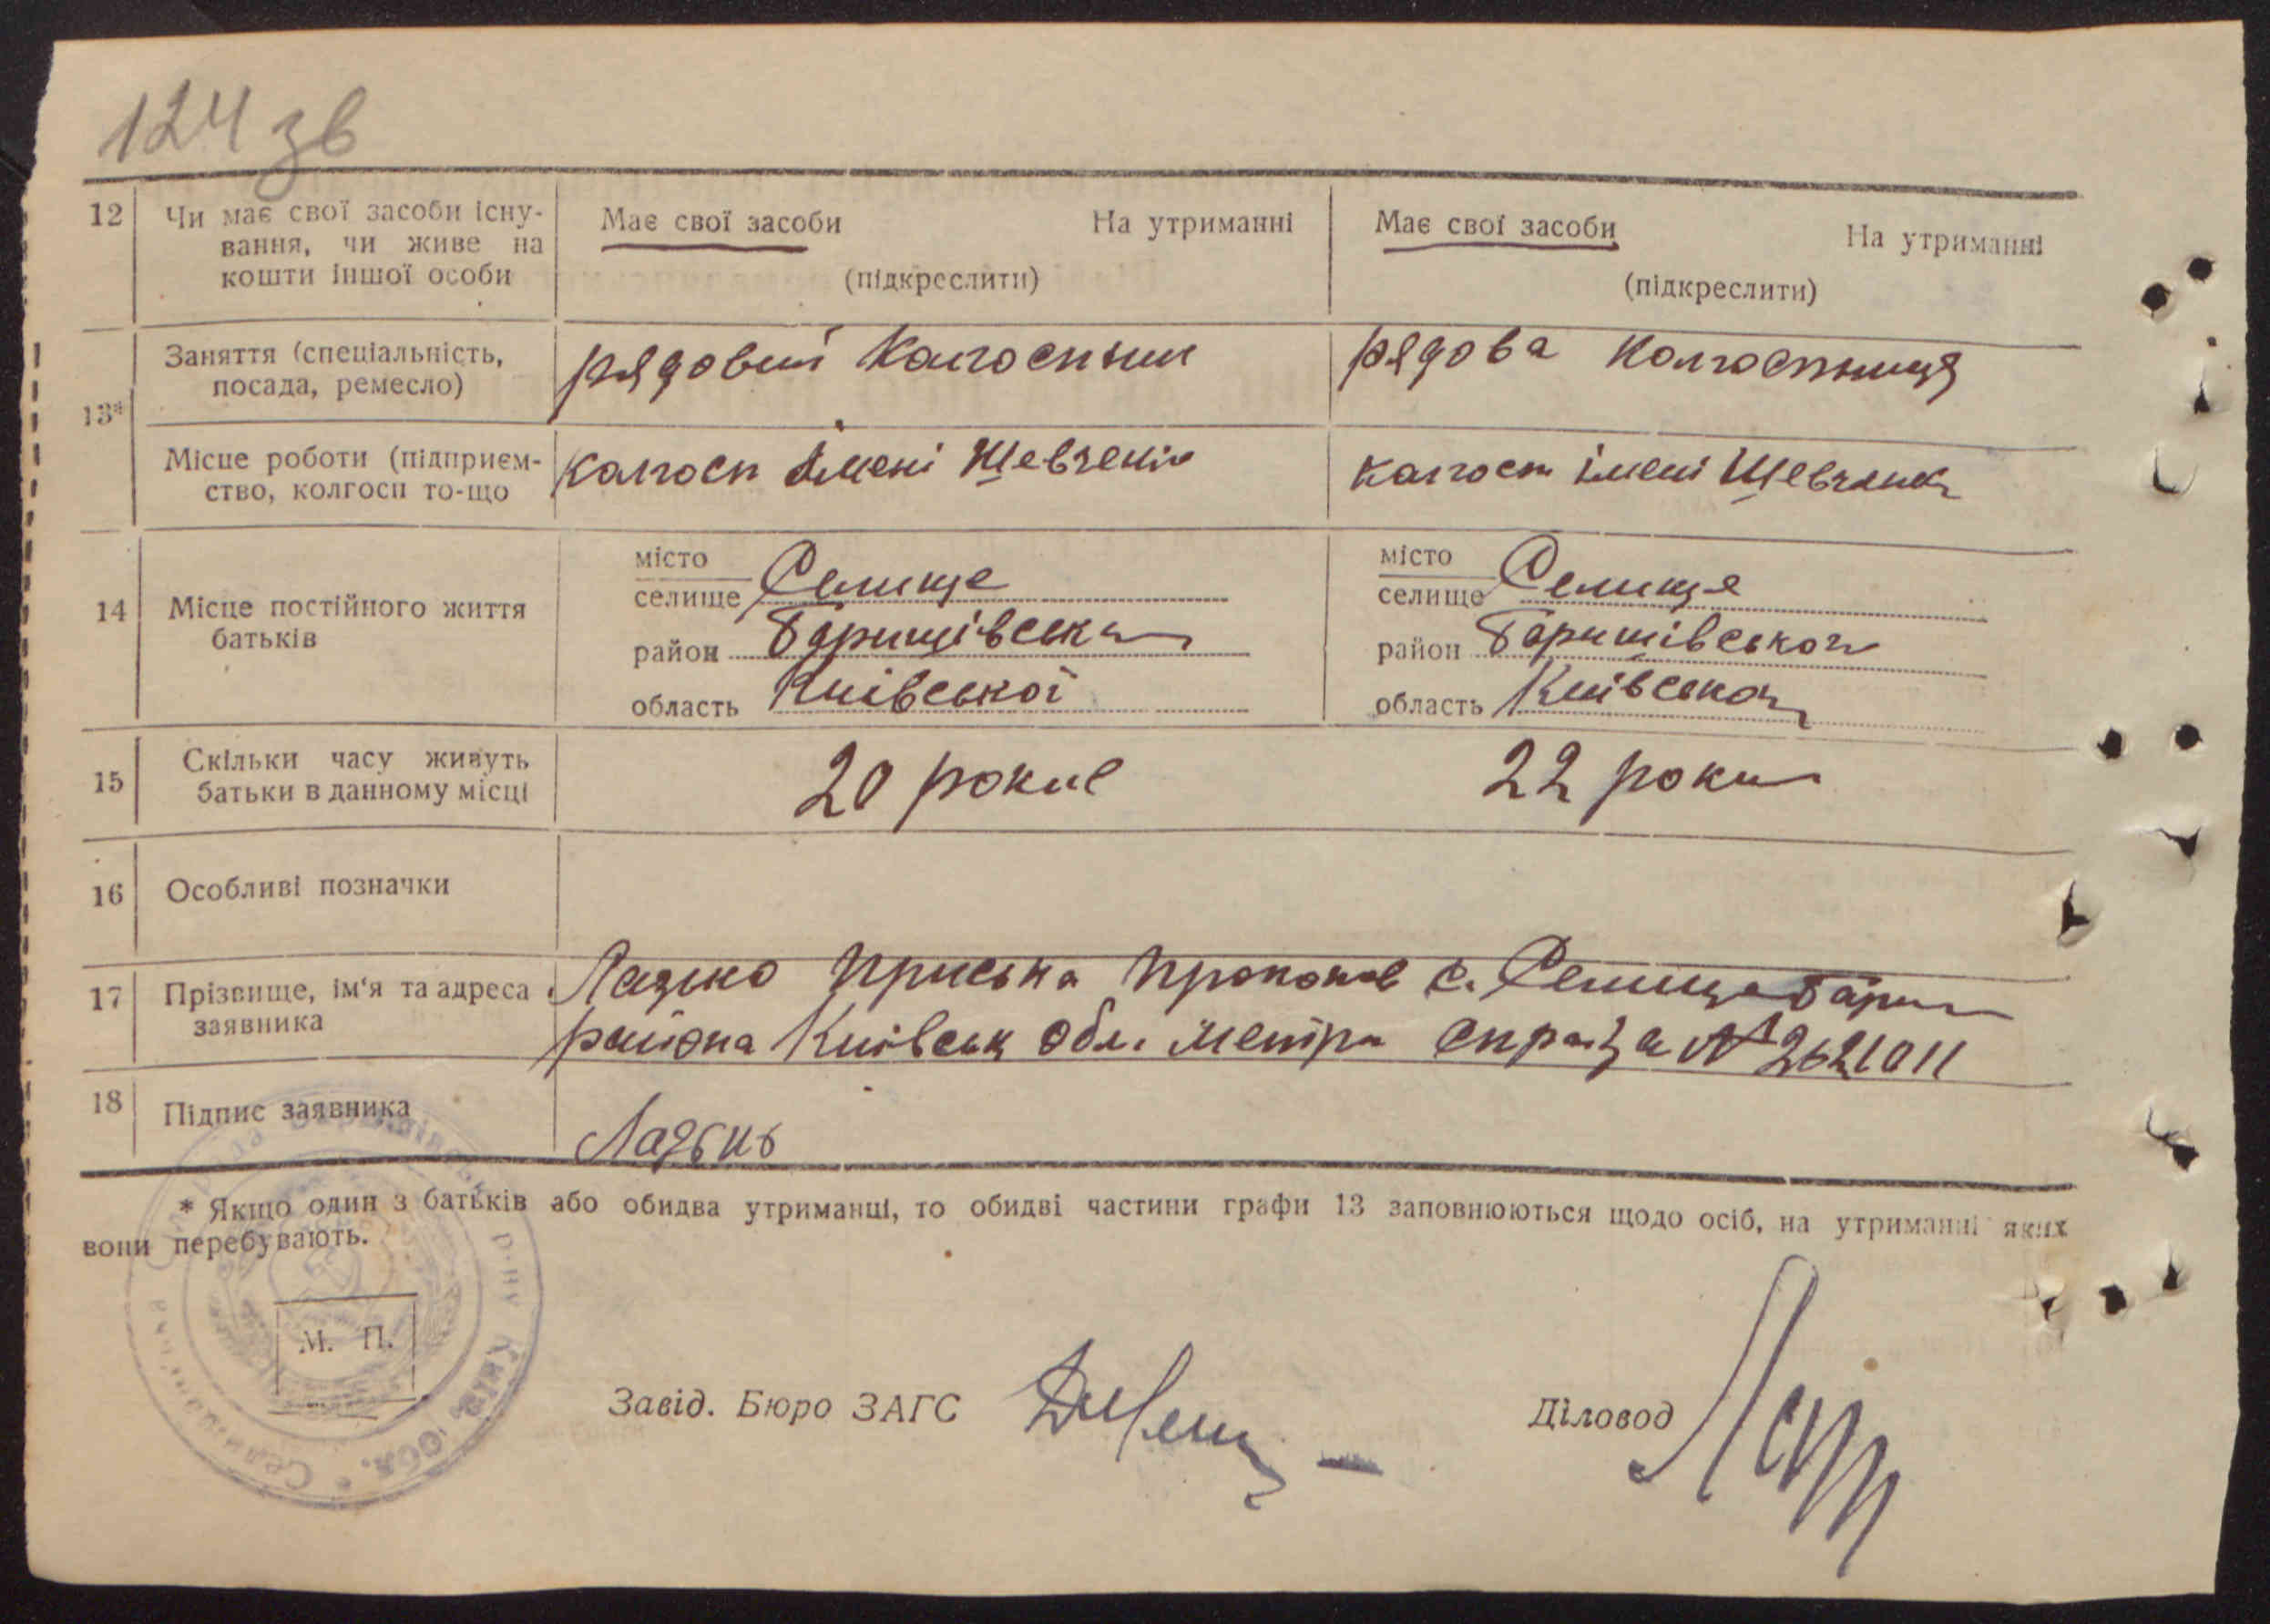 124 зв
12 Чи має свої засоби існу- Має свої засоби На утриманні Має свої засоби На утриманні
вання, чи живе на
кошти іншої особи (підкреслити) (підкреслити)
Заняття (спеціальність, рядовий колгоспник рядова колгоспниця
посада, ремесло)
13*
Місце роботи (підприєм- колгосп імені Шевченка колгосп імені Шевченка
ство, колгосп то-що
місто місто
селище Селище селище Селище
14 Місце постійного життя
батьків район Баришівська район Баришівського
область Київської область Київської
15 Скільки часу живуть 20 років 22 роки
батьки в данному місці
16 Особливі позначки
17 Прізвище, ім'я та адреса Лазько Приська Проконов с. Селище Бариш
заявника района Київськ Обл. метри справка № 2621011
18 Підпис заявника Лазько
* Якщо один з батьків або обидва утриманці, то обидві частини графи 13 заповнюються щодо осіб, на утриманні яких
вони перебувають.
М. П.
Завід. Бюро ЗАГС Діловод
р-ну Київ. обл.